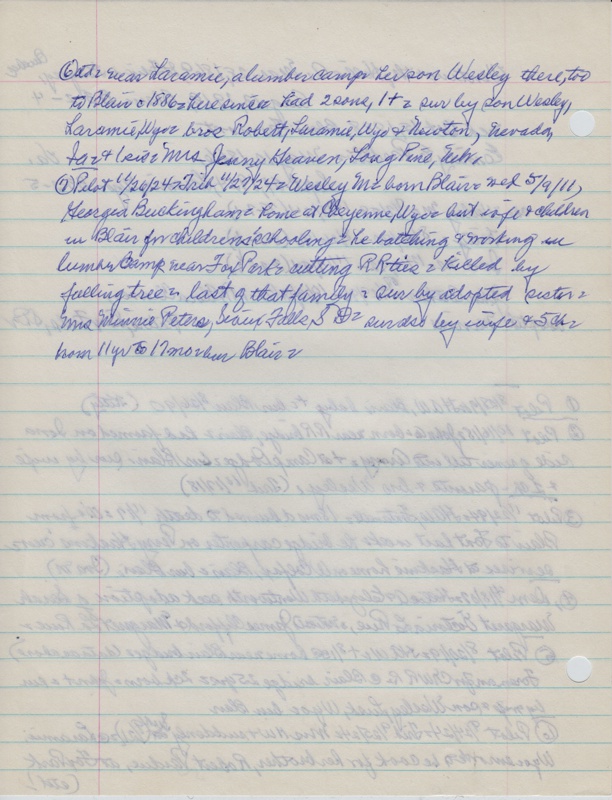 ⑥ctd = near Laramie, a lumber camp = her son Wesley there, too
to Blair c 1886 = here since = had 2 sons, 1 + = sur by son Wesley,
Laramie, Wyo = bros Robert, Laramie, Wyo & Newton, Nevada,
Ia = & sis = Mrs Jenny Heaven, Long Pine, Neb,
⑦ Pilot 11/26/24 = Trib 11/27/24 = Wesley Mc born Blair = wed 5/9/11,
Georgia Buckingham = home at Cheyenne, Wyo = but wife & children
in Blair for children's schooling = he batching & working in
lumber camp near Fox Park = cutting RR ties = killed by
falling tree = last of that family = sur by adopted sister =
Mrs Minnie Peters, Sioux Falls, S D = sur also by wife & 5 ch =
from 11 yr to 17 mo = bur Blair =